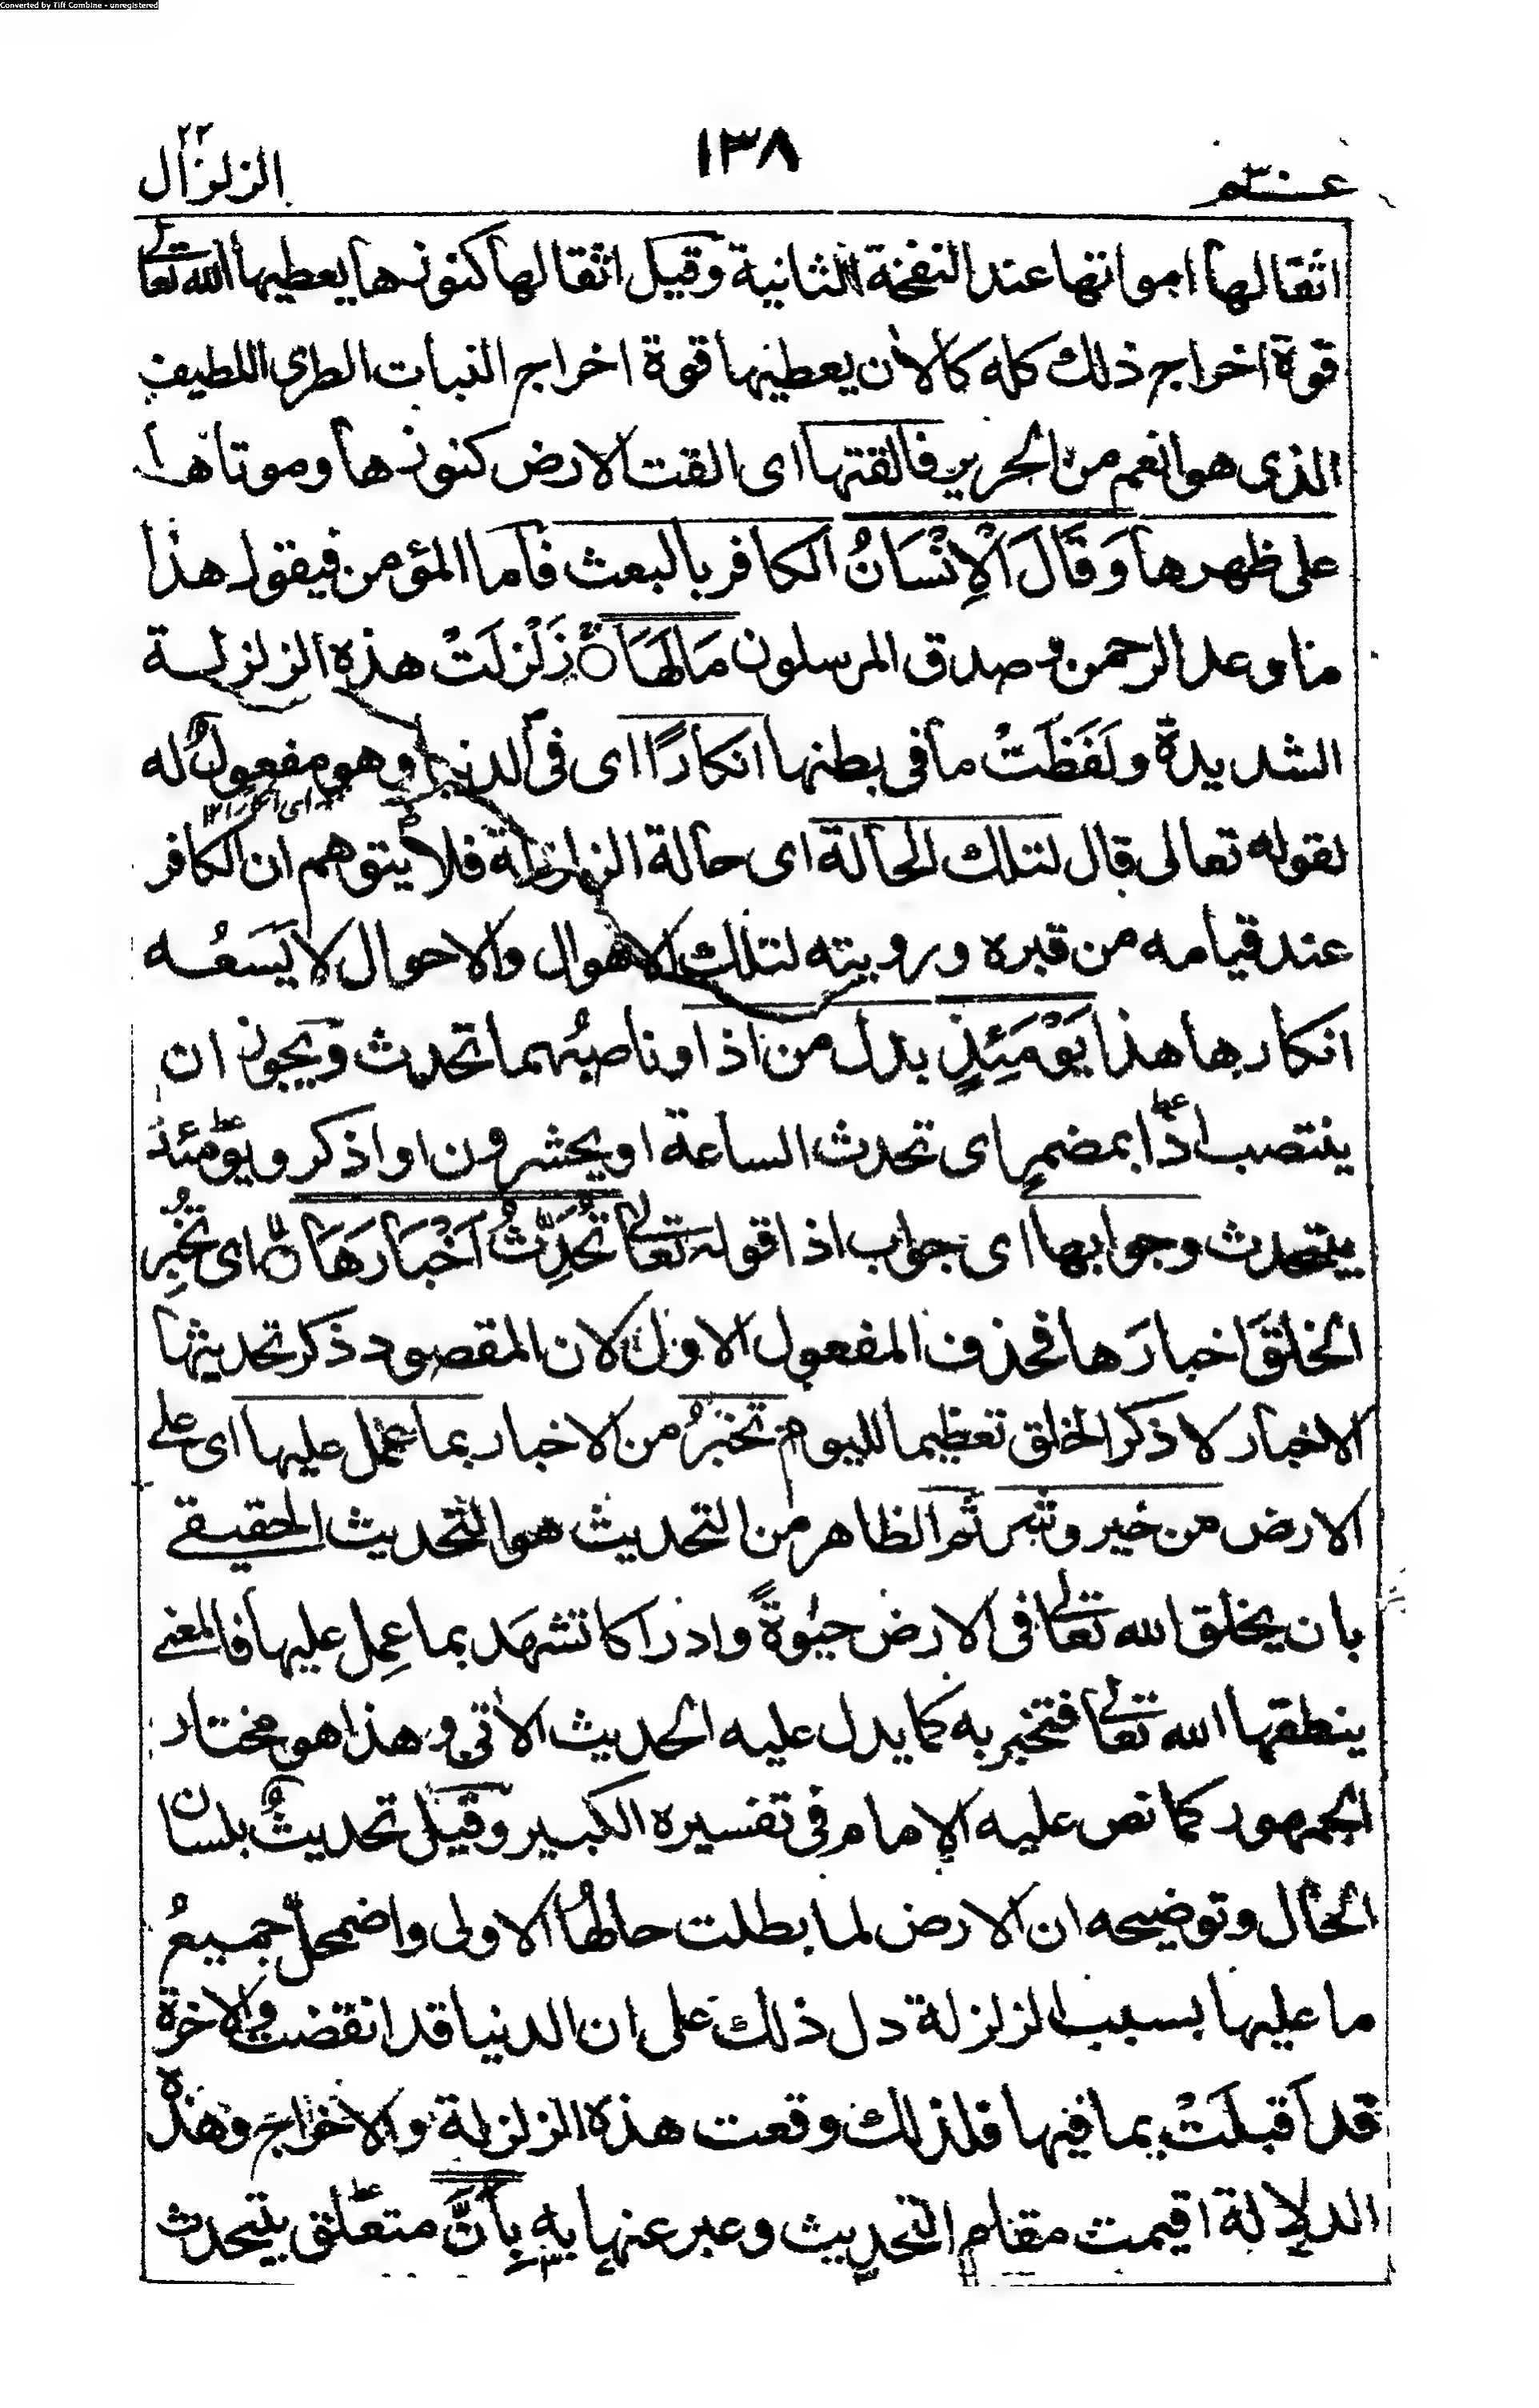 Converted by Tiff Combine - unregistered
عــم ٣٠
١٣٨
الزلزال
٢٢
اثقالها امواتها عند النفخة الثانية وقيل اثقالها كنوزها يعطيها الله تعالى
قوة اخراج ذلك كله كالان يعطيها قوة اخراج النبات الطرى اللطيف
الذى هو انعم من الحرير فالقتها اى القت الارض كنوزها وموتاها
على ظهرها وَقَالَ الْاِنْسَانُ الكافر بالبعث فاما المؤمن فيقول هذا
ما وعد الرحمن وصدق المرسلون مَالَهَا زَلْزَلَتْ هذه الزلزلة
الشديدة ولَفَظَتْ ما فى بطنها انكارًا اى فى الدنيا وهو مفعولٌ له
لقوله تعالى قال لتلك الحالة اى حالة الزلزلة فلا يتوهم ان الكافر
عند قيامه من قبره ورويته لتلك الاهوال والاحوال لا يَسَعُه
انكارها هذا يَوْمَئِذٍ بدل من اذا وناصبُهما تحدث ويجوز ان
ينتصب اذا بمضمر اى تحدث الساعة او يحشرون او اذكر ويومئذ
بتحدث وجوابها اى جواب اذا قوله تعالى تُحَدِّثُ اَخْبَارَهَا اى تُخْبِرُ
الخلقَ اخبارَها فحذف المفعول الاول لان المقصود ذكر تحديثها
الاخبار لا ذكر الخلق تعظيما لليوم تخبرُ من الاخبار بما عمل عليها اى على
الارض من خير وشر ثم الظاهر من التحديث هو التحديث الحقيقى
بان يخلق الله تعالى فى الارض حيٰوةً وادراكا تشهَد بما عمِل عليها فالمعنى
ينطقها الله تعالى فتخبر به كما يدل عليه الحديث الاتى وهذا هو مختار
الجمهور كما نص عليه الامام فى تفسيره الكبير وقيل تحديثٌ بلسان
الحال وتوضيحه ان الارض لما بطلت حالُها الاولى واضمحل جميعُ
ما عليها بسبب الزلزلة دل ذلك على ان الدنيا قد انقضت والاخرة
قد اَقبلَتْ بما فيها فلذلك وقعت هذه الزلزلة والاخراج وهذه
الدلالة اقيمت مقام التحديث وعبر عنها به بِاَنَّ متعلق بتحدث